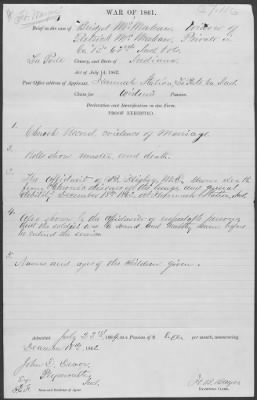 WAR OF 1861.
Brief in the case of Bridget McMahan, Widow of
Patrick McMahan, Private in
Co. "B" 63rd Ind Vols.
La Porte County, and State of Indiana
Act of July 14, 1862.
Post Office address of Applicant: Hannah Station, La Porte Co. Ind.
Claim for Widow's Pension.
Declaration and Identification in due Form.
PROOF EXHIBITED.
1 Church Record evidence of Marriage.
2 Rolls show muster and death.
3 The Affidavit of M.D. shows death
from Chronic disease of the lungs and general
debility December 18th 1862, at Hannah Station, Ind.
4 Also shown by the affidavits of respectable persons
that the soldier was a sound and healthy man before
he entered the service
5 Names and ages of the children given.
Admitted July 22nd 1864, to a Pension of $ 8.00 per month, commencing
December 18th 1862
John
Ind.
Name and Residence of Agent.
Examining Clerk.